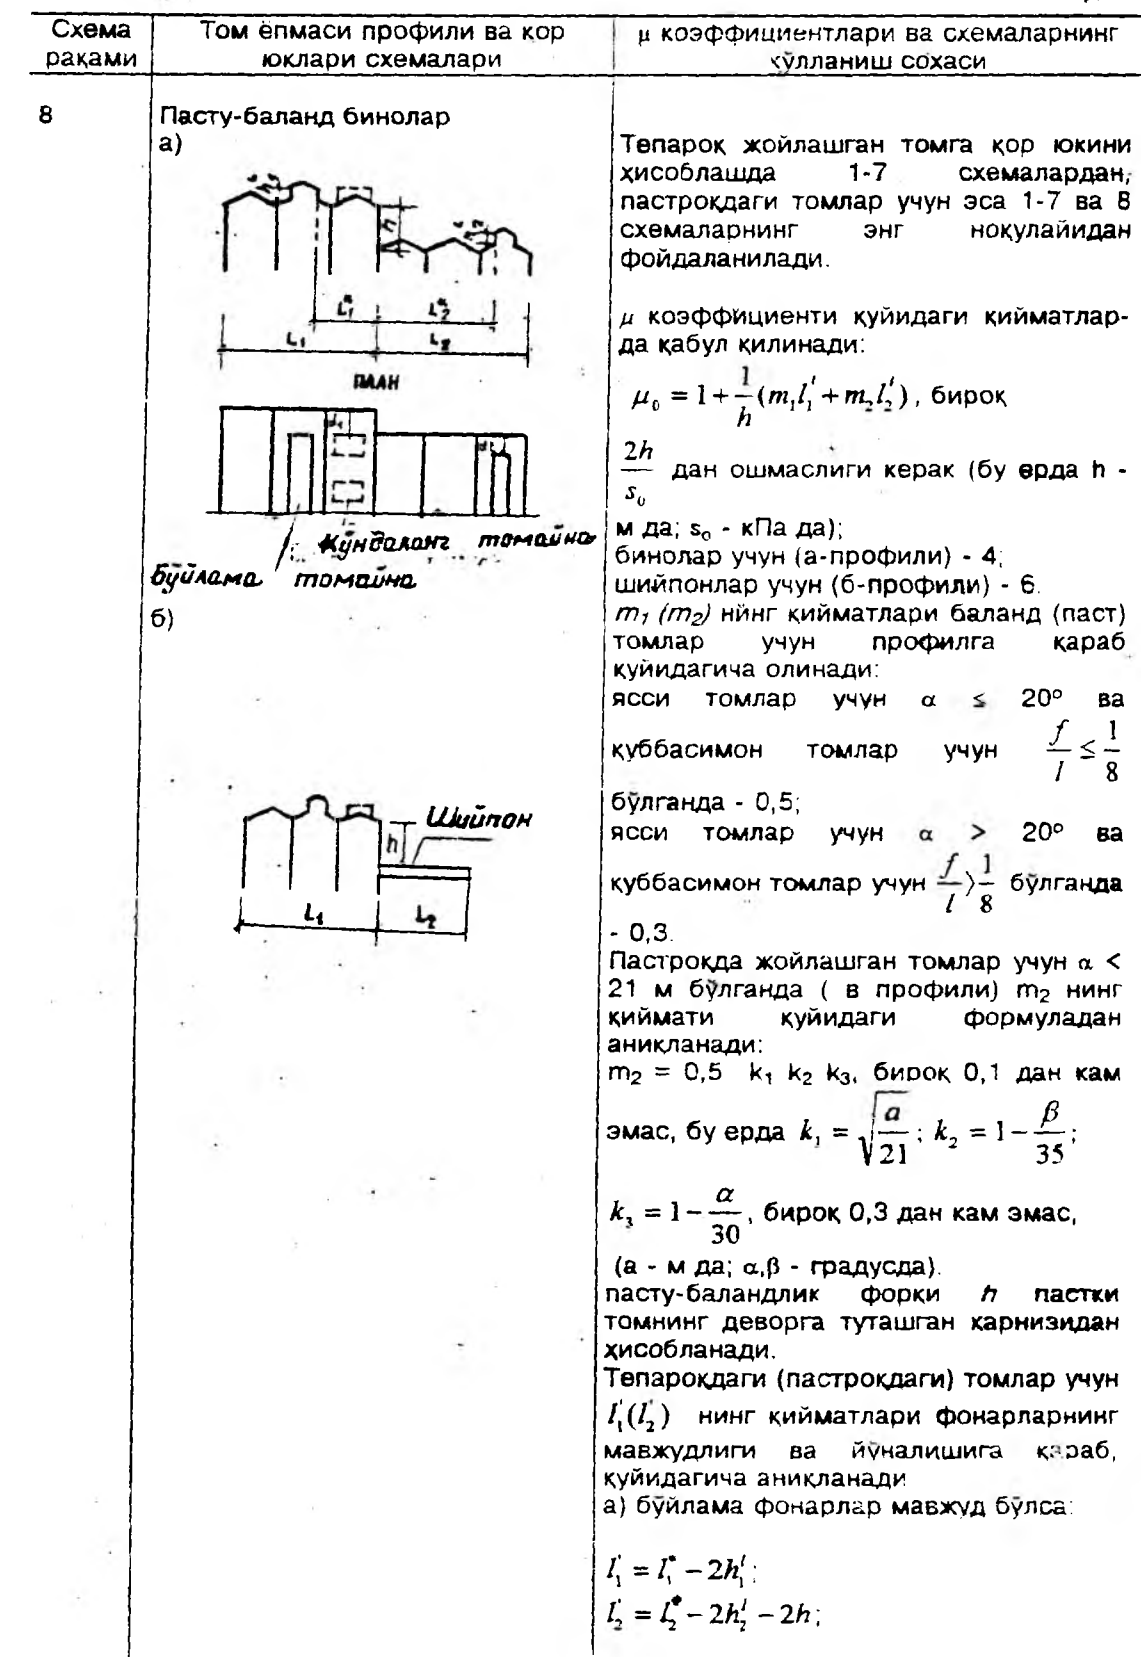 Схема
рақами
Том ёпмаси профили ва қор
юклари схемалари
μ коэффициентлари ва схемаларнинг
қўлланиш соҳаси
8
Пасту-баланд бинолар
а)
h
L₁*
L₂*
L₁
L₂
ПЛАН
d₁
Кўндаланг томайна
Бўйлама томайна
б)
Шийпон
h
L₁
L₂
Тепароқ жойлашган томга қор юкини
ҳисоблашда 1-7 схемалардан,
пастроқдаги томлар учун эса 1-7 ва 8
схемаларнинг энг ноқулайидан
фойдаланилади.
μ коэффициенти қуйидаги қийматлар-
да қабул қилинади:
μ₀ = 1 + 1/h (m₁l₁' + m₂l₂'), бироқ
2h/s₀ дан ошмаслиги керак (бу ерда h -
м да; s₀ - кПа да);
бинолар учун (а-профили) - 4;
шийпонлар учун (б-профили) - 6.
m₁ (m₂) нинг қийматлари баланд (паст)
томлар учун профилга қараб
қуйидагича олинади:
ясси томлар учун α ≤ 20° ва
қуббасимон томлар учун f/l ≤ 1/8
бўлганда - 0,5;
ясси томлар учун α > 20° ва
қуббасимон томлар учун f/l > 1/8 бўлганда
- 0,3.
Пастроқда жойлашган томлар учун α <
21 м бўлганда ( в профили) m₂ нинг
қиймати қуйидаги формуладан
аниқланади:
m₂ = 0,5 k₁ k₂ k₃, бироқ 0,1 дан кам
эмас, бу ерда k₁ = √(a/21); k₂ = 1 - β/35;
k₃ = 1 - α/30, бироқ 0,3 дан кам эмас,
(а - м да; α,β - градусда).
пасту-баландлик форқи h пастки
томнинг деворга туташган карнизидан
ҳисобланади.
Тепароқдаги (пастроқдаги) томлар учун
l₁'(l₂') нинг қийматлари фонарларнинг
мавжудлиги ва йўналишига қараб,
қуйидагича аниқланади
а) бўйлама фонарлар мавжуд бўлса:
l₁' = l₁* - 2h₁';
l₂' = l₂* - 2h₂' - 2h;